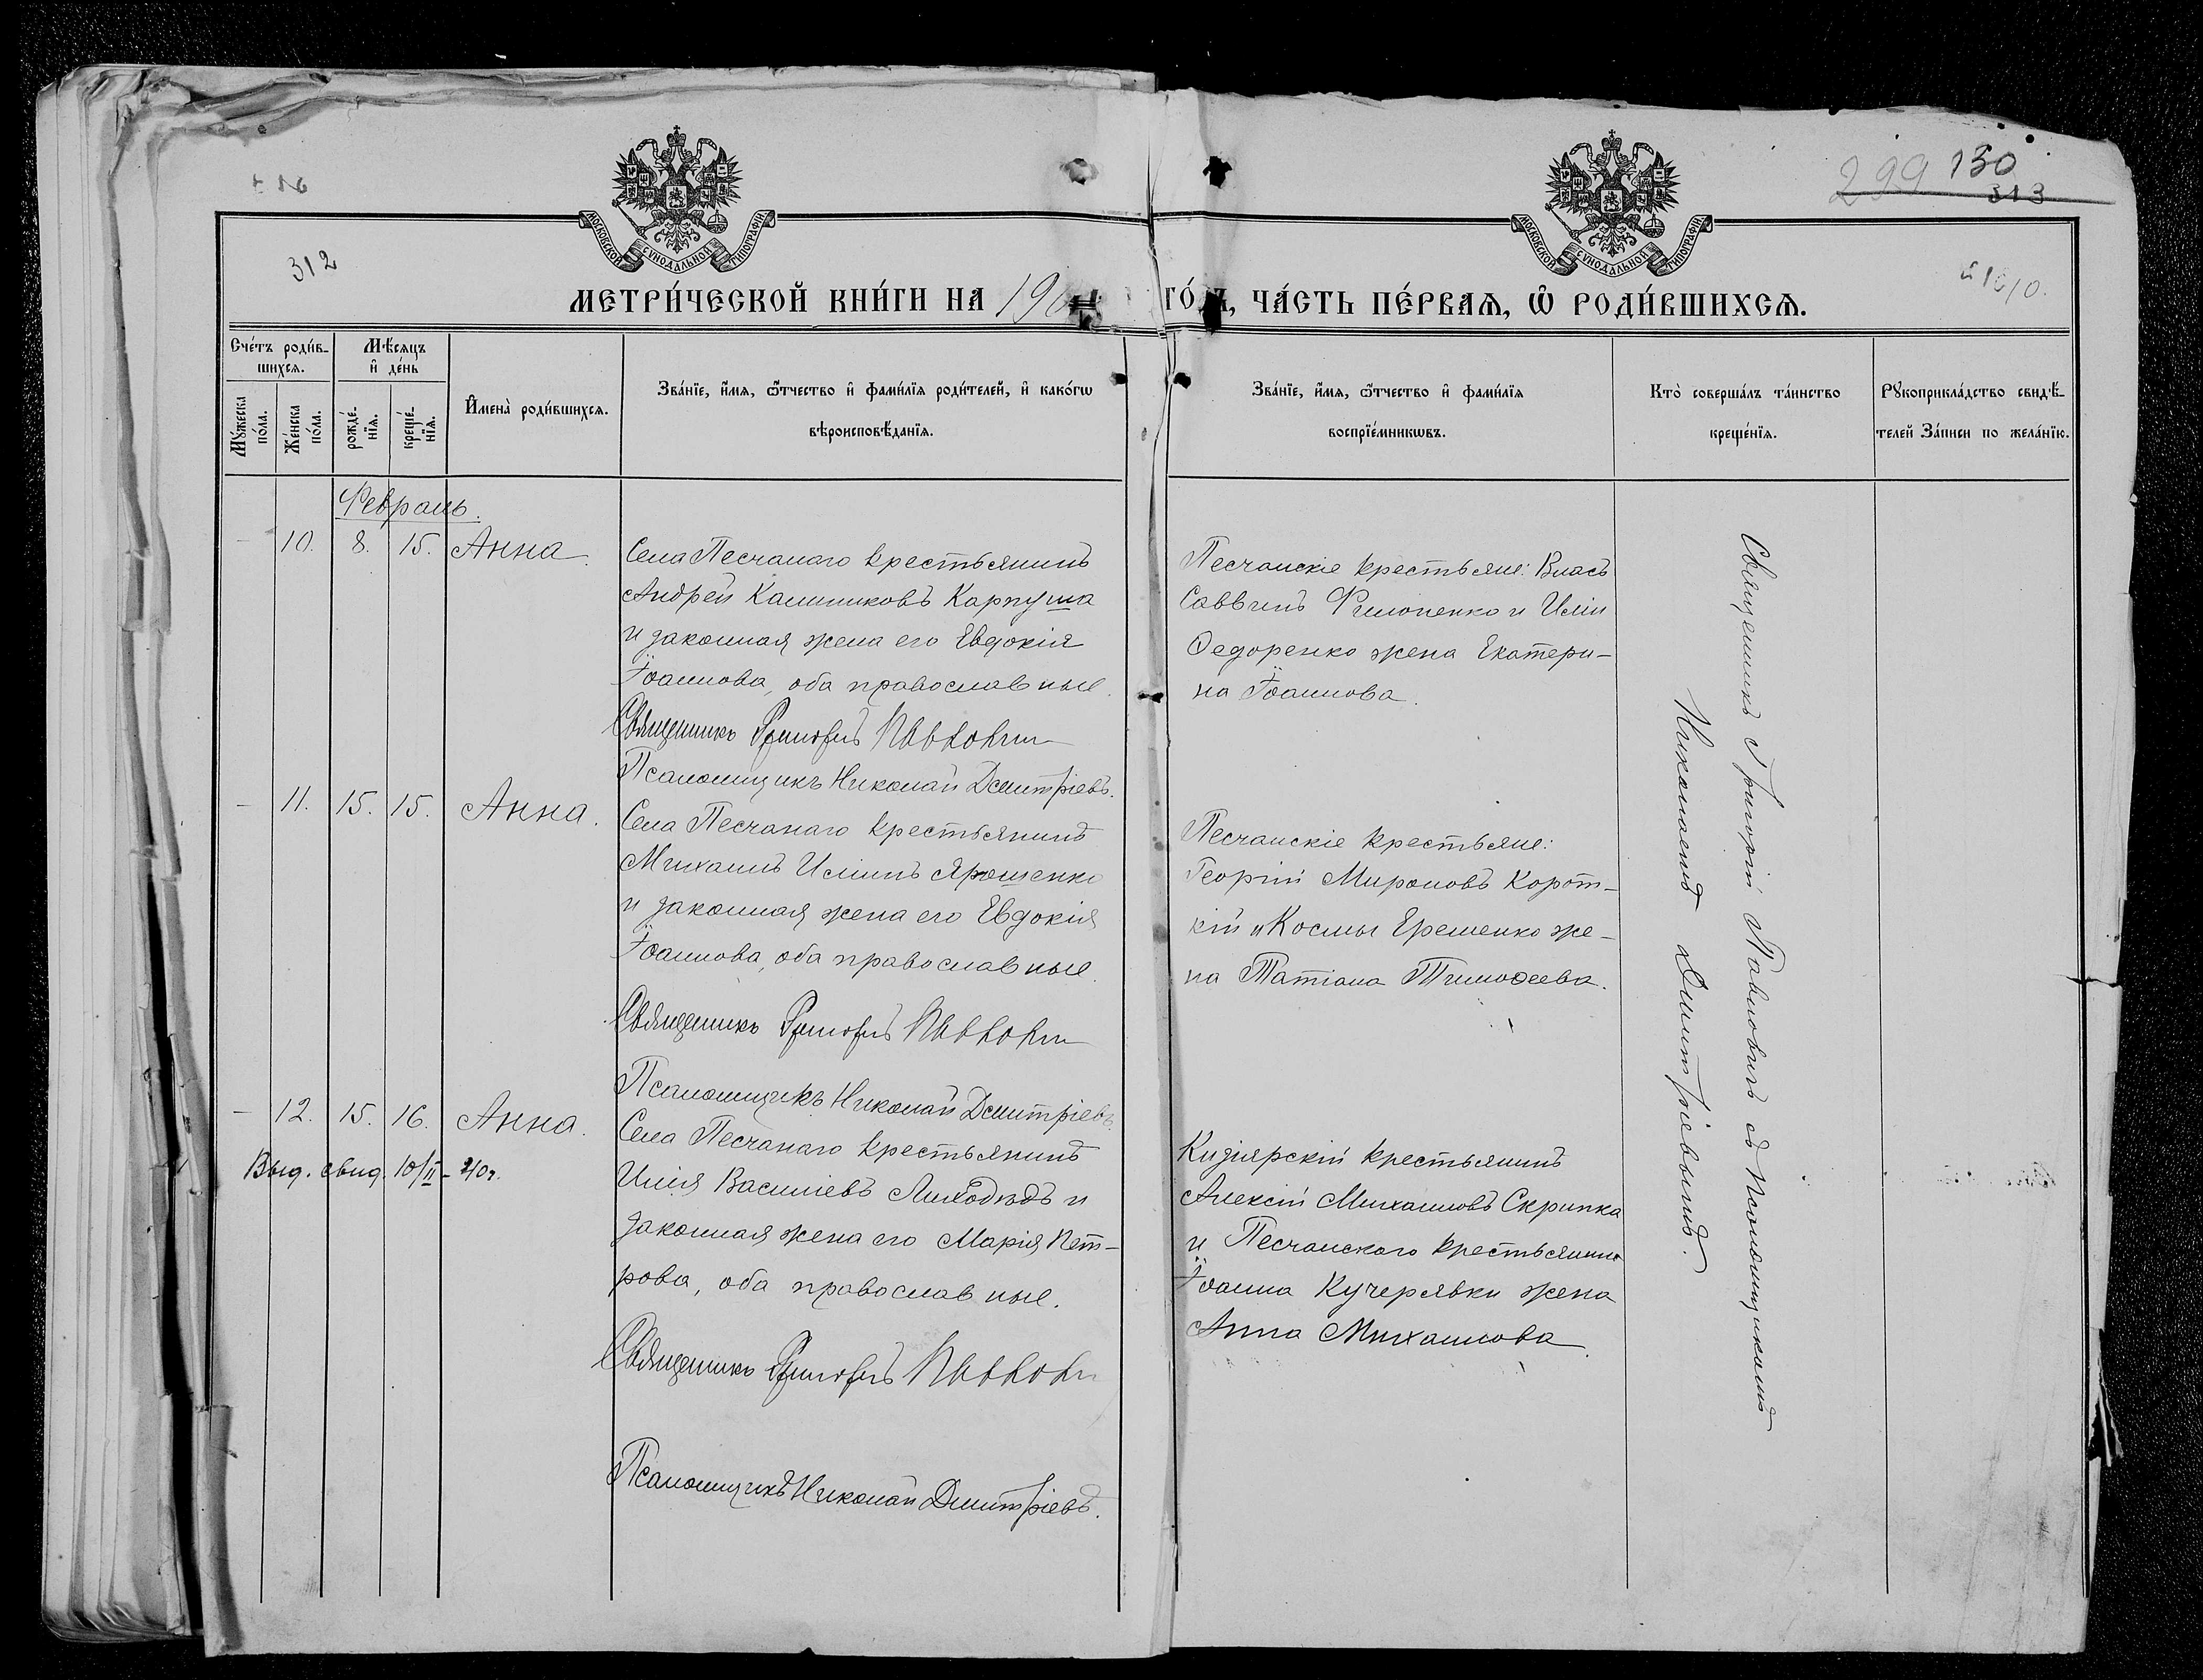 312
130
299
313
МОСКОВСКОЙ СУНОДАЛЬНОЙ ТИПОГРАФІИ
МОСКОВСКОЙ СУНОДАЛЬНОЙ ТИПОГРАФІИ
МЕТРИ́ЧЕСКОЙ КНИ́ГИ НА 190
ЧА́СТЬ ПЕ́РВАѦ, Ѡ҆ РОДИ́ВШИХСѦ.
Сче́тъ роди́в-
шихсѧ.
Мꙋ́жеска по́ла.
Же́нска по́ла.
Мѣ́сѧцъ
и҆ де́нь
рожде́-нїѧ.
креще́-нїѧ.
И҆мена̀ роди́вшихсѧ.
Зва́нїе, и҆́мѧ, ѻ҆́тчество и҆ фами́лїѧ роди́телей, и҆ како́гѡ
вѣроисповѣ́данїѧ.
Зва́нїе, и҆́мѧ, ѻ҆́тчество и҆ фами́лїѧ
воспрїе́мникѡвъ.
Кто̀ соверша́лъ та́инство
креще́нїѧ.
Рꙋкоприкла́дство свидѣ́-
телей За́писи по жела́нїю.
Февраль.
- 10. 8. 15. Анна.
Села Песчанаго крестьянинъ
Андрей Калиниковъ Карпуша
и законная жена его Евдокія
Іоаннова, оба православные.
Священникъ Григорій Павловичъ
Псаломщикъ Николай Дмитріевъ.
Песчанскіе крестьяне: Власъ
Саввинъ Филоненко и Иліи
Ѳедоренко жена Екатери-
на Іоаннова.
- 11. 15. 15. Анна.
Села Песчанаго крестьянинъ
Михаилъ Иліинъ Ярошенко
и законная жена его Евдокія
Іоаннова, оба православные.
Священникъ Григорій Павловичъ
Псаломщикъ Николай Дмитріевъ.
Песчанскіе крестьяне:
Георгій Мироновъ Корот-
кій и Космы Ерешенко же-
на Татіана Тимоѳеева.
- 12. 15. 16. Анна.
Выд. свид. 10/II - 40г.
Села Песчанаго крестьянинъ
Илія Василіевъ Лиходѣдъ и
законная жена его Марія Пет-
рова, оба православные.
Священникъ Григорій Павловичъ
Псаломщикъ Николай Дмитріевъ.
Кизіярскій крестьянинъ
Алексій Михаиловъ Скрипка
и Песчанскаго крестьянина
Іоанна Кучерявки жена
Анна Михаилова.
Священникъ Григорій Павловичъ съ псаломщикомъ
Николаемъ Дмитріевымъ.